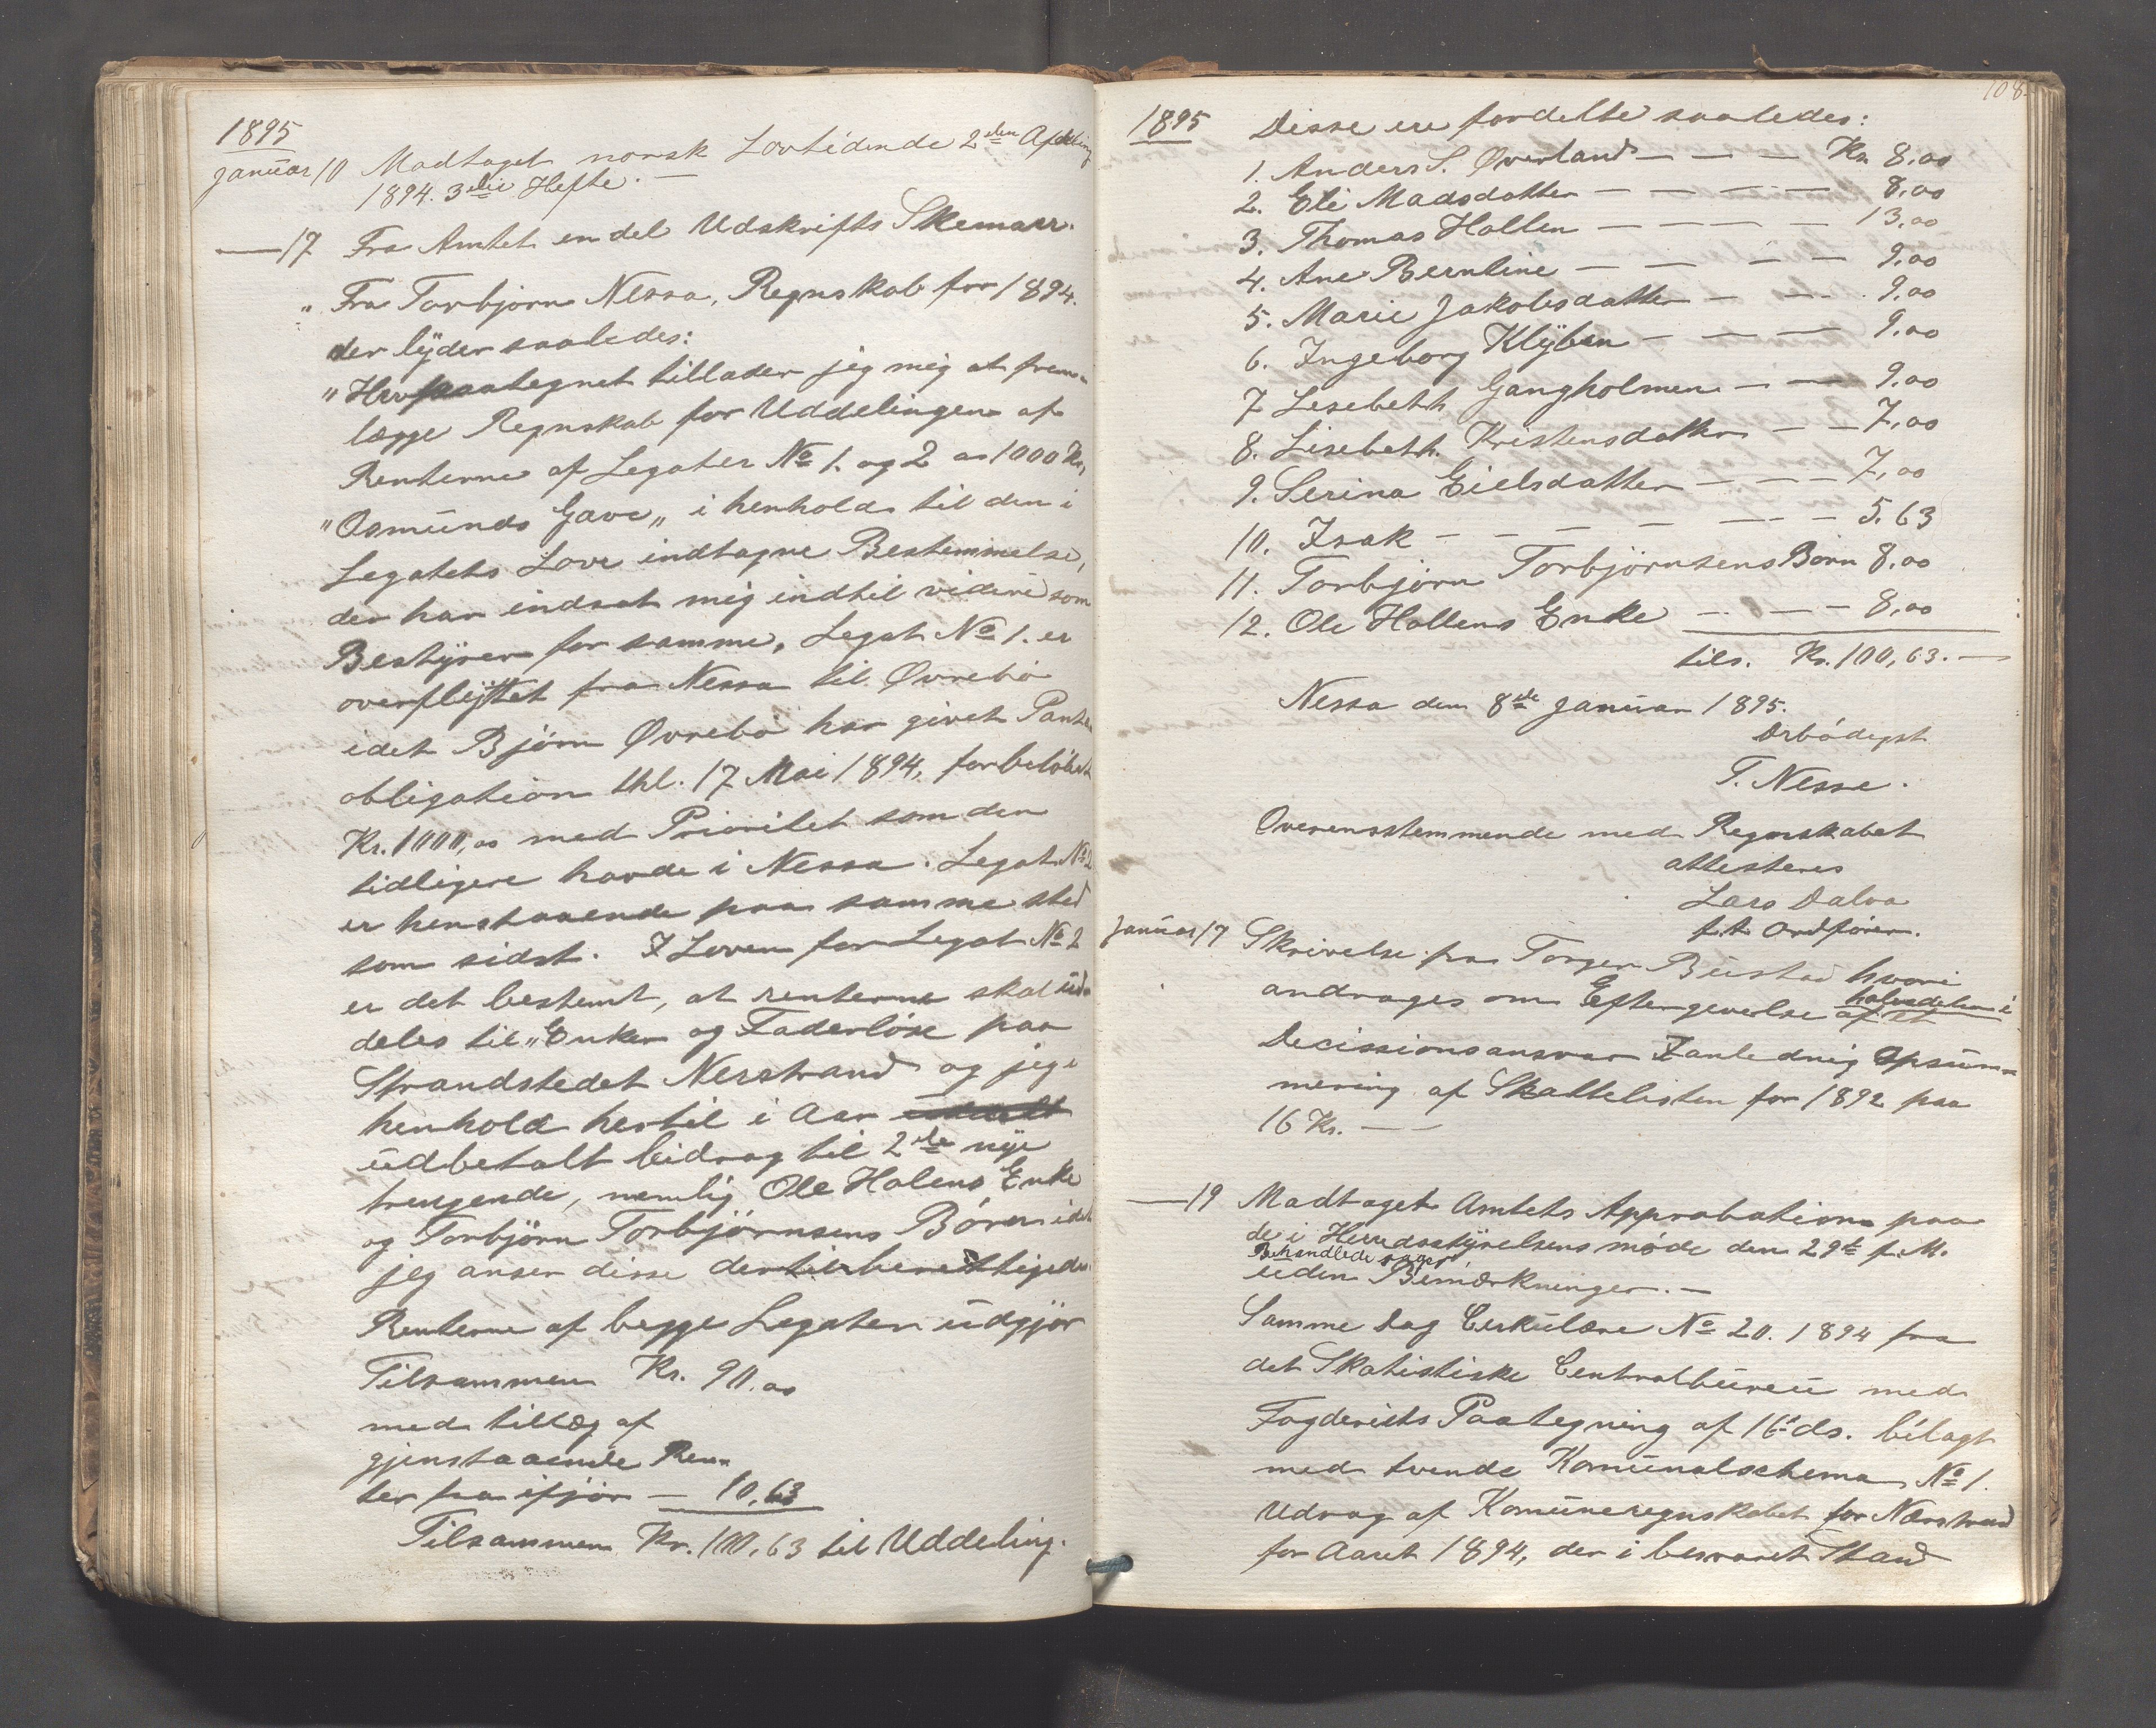 1895
Januar 10 Modtaget norsk Lovtidende 2den Afdeling
1894. 3die Hefte. —
— 17 Fra Amtet en del Udskrifts Skemaer.
" Fra Torbjørn Nessa, Regnskab for 1894.
der lyder saaledes:
"Herpaategnet tillader jeg mig at frem-
lægge Regnskab for Uddelingen af
Renterne af Legater No 1. og 2 a 1000 Kr,
"Osmunds Gave" i henhold til den i
Legatets Love indtagne Bestemmelse,
der har indsat mig indtil videre som
Bestyrer for samme. Legat No 1. er
overflyttet fra Nessa til Øvrebø
idet Bjørn Øvrebø har givet Pante
obligation thl. 17 Mai 1894, for beløbet
Kr. 1000,00 med Prioritet som den
tidligere havde i Nessa. Legat No 2
er henstaaende paa samme sted
som sidst. I Loven for Legat No 2
er det bestemt, at renterne skal ud-
deles til "Enker og Faderløse paa
Strandstedet Nerstrand og jeg i
henhold hertil i Aar
udbetalt bidrag til 2de nye
trengende, nemlig Ole Holens Enke
og Torbjørn Torbjørnsens Børn idet
jeg anser disse dertil berettigede.
Renterne af begge Legater udgjør
Tilsammen Kr. 90.00
med tillæg af
gjenstaaende Ren-
ter fra ifjor — 10,63
Tilsammen Kr. 100,63 til Uddeling.
108.
1895 Disse ere fordelte saaledes:
1. Anders S. Øverland — — — Kr. 8,00
2. Eli Madsdatter — — — — — 8,00
3. Thomas Hollen — — — — — 13,00
4. Ane Berntine — — — — — 9,00
5. Marie Jakobsdatter — — — 9,00
6. Ingeborg Klyben — — — — 9,00
7 Lisebeth Gangholmen — — — 9,00
8. Lisebeth. Kristensdatter — — 7,00
9. Serina Eielsdatter — — — — 7,00
10. Isak — — — — — — — 5.63
11. Torbjørn Torbjørnsens Børn 8,00
12. Ole Hollens Enke — — — 8,00
tils. Kr. 100,63. —
Nessa den 8de Januar 1895.
Ærbødigst
T. Nesse.
Overensstemmende med Regnskabet
attesteres
Lars Dalva
f.t. Ordfører.
Januar 17 Skrivelse fra Torger Bustad hvori
andrages om Eftergivelse af halvdelen i et
Decissionsansvar I anledning Opsum-
mering af Skattelisten for 1892 paa
16 Kr. — —
— 19 Modtaget Amtets Approbation paa
de i Herredsstyrelsens møde den 29de f. M.
Behandlede sager
uden Bemærkninger. —
Samme Dag Cirkulære No 20. 1894 fra
det Statistiske Centralbureu med
Fogderiets Paategning af 16de ds. bilagt
med tvende Komunalschema No 1.
Udrag af Komuneregnskabet for Nærstrand
for Aaret 1894, der i besvaret Stand